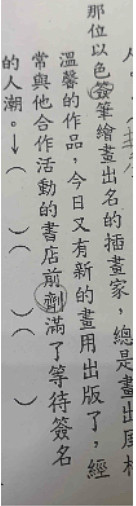 那位以色簽筆繪畫出名的插畫家，總是畫出風格
溫馨的作品，今日又有新的畫用出版了，經
常與他合作活動的書店前劑滿了等待簽名
的人潮。↓（　）（　）（　）